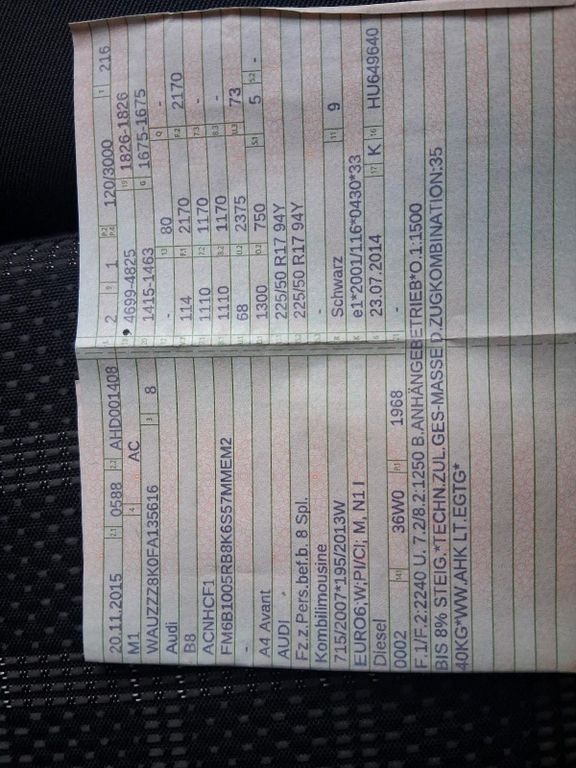 20.11.2015 2.1 0588 2.2 AHD001408
M1 4 AC
WAUZZZ8K0FA135616 3 8
Audi
B8
ACNHCF1
FM6B1005RB8K6S57MMEM2
-
A4 Avant
AUDI
Fz.z.Pers.bef.b. 8 Spl.
Kombilimousine
715/2007*195/2013W
EURO6,W;PI/CI; M, N1 I
Diesel
0002 14.1 36W0 P.1 1968
L 2 9 1 P.2 P.4 120/3000 T 216
18 4699-4825 19 1826-1826
20 1415-1463 G 1675-1675
12 - 13 80 Q -
V.7 114 F.1 2170 F.2 2170
7.1 1110 7.2 1170 7.3 -
8.1 1110 8.2 1170 8.3 -
U.1 68 U.2 2375 U.3 73
O.1 1300 O.2 750 S.1 5 S.2 -
15.1 225/50 R17 94Y
15.2 225/50 R17 94Y
15.3 -
R Schwarz 11 9
K e1*2001/116*0430*33
6 23.07.2014 17 K 16 HU649640
21 -
F.1/F.2:2240 U. 7.2/8.2:1250 B.ANHÄNGEBETRIEB*O.1:1500
BIS 8% STEIG.*TECHN.ZUL.GES-MASSE D.ZUGKOMBINATION:35
40KG*WW.AHK LT.EGTG*